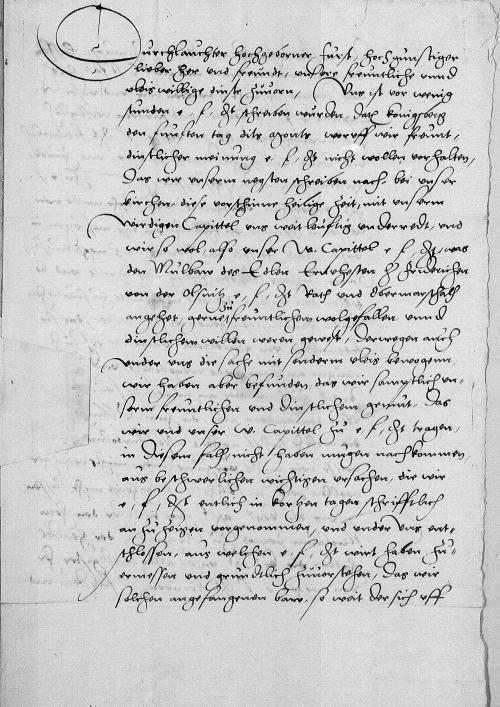 Durchlauchter hochgeborner furst, hochgunstiger
lieber her und freundt, unsere freuntliche unnd
vleis willige dinste zuuorn, Uns ist vor wenig
stunden e. f. dt schreiben worden, dat. konigsberg
den funften tag dits monts, woruff wir freunt-
dinstlicher meinung e. f. dt nicht wollen vorhalten,
Das wir unserm negsten schreiben nach, bei unser
kirchen, diese vorschinne heilige zeit, mit unserm
wirdigen Capittel uns weitleuftig underredt, und
wir so wol, also unser W. Capittel e. f. dt, was
den Mulbaw des Edlen Erntvhesten H Friderichen
von der Olsnitz e. f. dt Rath und Obermarschalh
angehet, gerne zu freuntlichem wolgefallen unnd
dinstlichem willen weren gewest, Derwegen auch
under uns die sache mit sonderm vleis bewogenn,
wir haben aber befunden, das wir sampt­lich un-
serm freuntlichen und dinstlichem gemut, Das
wir und unser W. Capittel zu e. f. dt tragen,
in diesem fall, nicht haben mugen nachkommen
aus beschwerlichen wichtigen ursachen, die wir
e. f. dt entlich in kortzen tagen schrifftlich
anzuzeigen vorgenommen, und under uns ent-
schlossen, aus welchen e. f. dt wirt haben zu-
ermessen und gruntlich zuuorstehen, Das wir
solchen angefangenen baw, so weit der sich uff